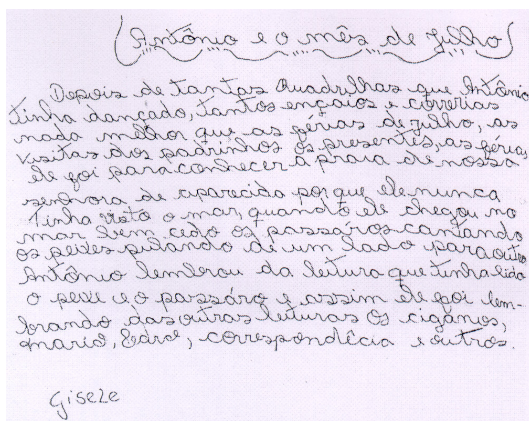 Antônio e o mês de julho
Depois de tantas Quadrilhas que Antônio
tinha dançado, tantos ençaios e correrias
nada melhor que as férias de julho, as
visitas dos padrinhos os presentes, as férias,
ele foi para conhecer a praia de nossa
senhora de aparecida porque ele nunca
tinha visto o mar, quando ele chegou no
mar bem cedo os passáros cantando
os peixes pulando de um lado para outro
Antônio lembrou da leitura que tinha lido
o peixe e o passáro e assim ele foi lem-
brando das outras leituras os ciganos,
mario, correspondêcia e outros.
Gisele